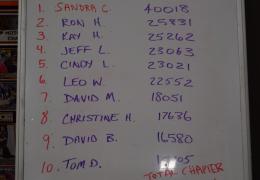 1. SANDRA C. 40018
2. RON H. 25831
3. KAY H. 25262
4. JEFF L. 23063
5. CINDY L. 23021
6. LEO W. 22552
7. DAVID M. 18051
8. CHRISTINE H. 17636
9. DAVID B. 16580
10. TOM D.
TOTAL CHAPTER